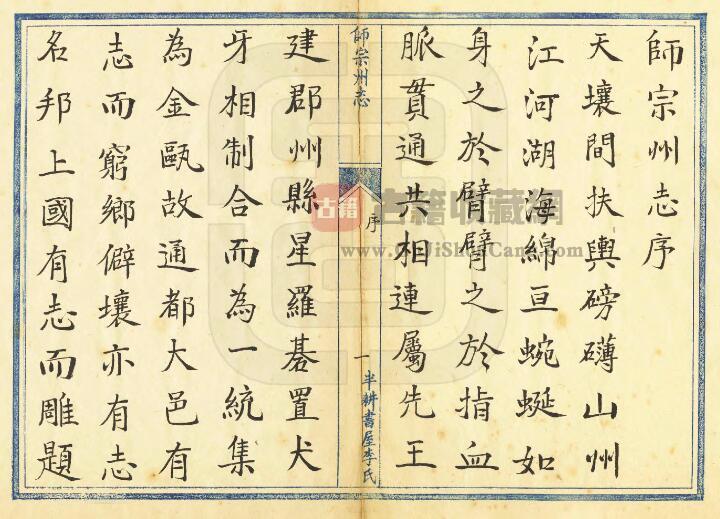 師宗州志序
天壤間扶輿磅礴山州
江河湖海綿亘蜿蜒如
身之於臂臂之於指血
脈貫通共相連屬先王
師宗州志
序
一
半耕書屋李氏
建郡州縣星羅碁置犬
牙相制合而為一統集
為金甌故通都大邑有
志而窮鄉僻壤亦有志
名邦上國有志而雕題
古籍收藏網
www.GuJiShouCang.com